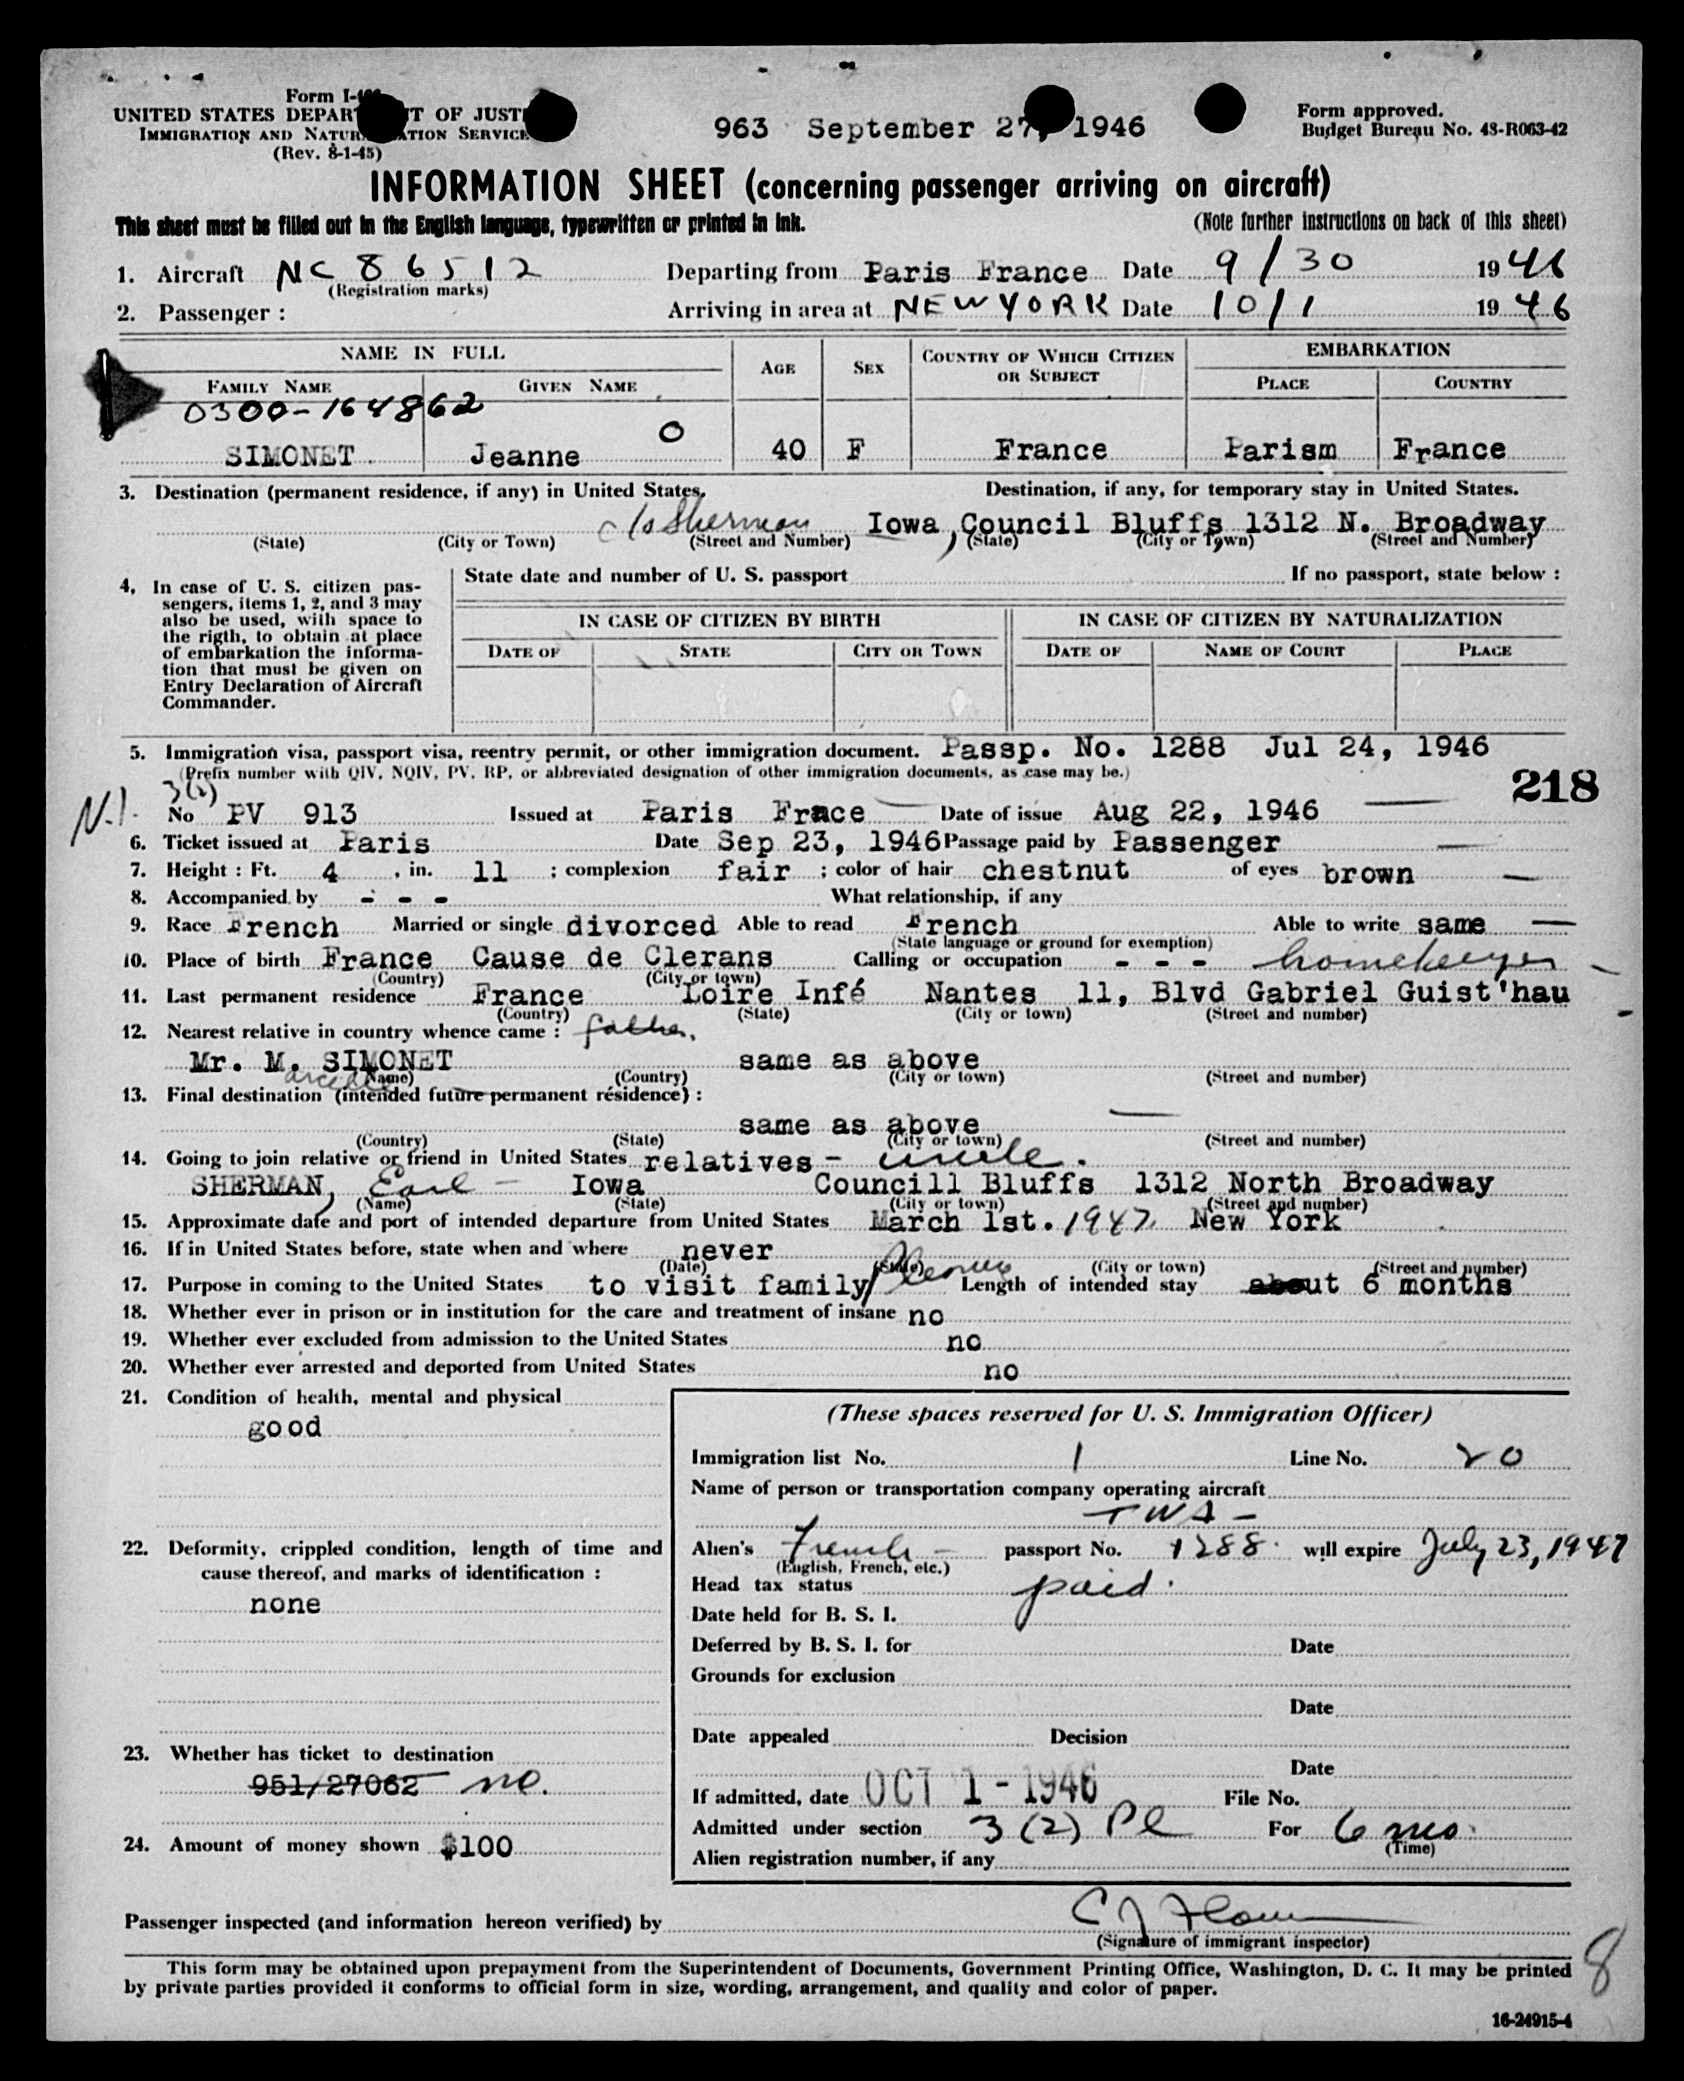 Form I-
UNITED STATES DEPAR T OF JUST
IMMIGRATION AND NATUR ATION SERVICE
(Rev. 8-1-45)
963 September 27, 1946
Form approved.
Budget Bureau No. 43-R063-42
INFORMATION SHEET (concerning passenger arriving on aircraft)
This sheet must be filled out in the English language, typewritten or printed in ink.
(Note further instructions on back of this sheet)
1. Aircraft NC 86512 Departing from Paris France Date 9/30 1946
(Registration marks)
2. Passenger : Arriving in area at NEW YORK Date 10/1 1946
NAME IN FULL AGE SEX COUNTRY OF WHICH CITIZEN OR SUBJECT EMBARKATION
FAMILY NAME GIVEN NAME PLACE COUNTRY
0300-164862
0
SIMONET Jeanne 40 F France Parism France
3. Destination (permanent residence, if any) in United States. Destination, if any, for temporary stay in United States.
c/o Sherman Iowa, Council Bluffs 1312 N. Broadway
(State) (City or Town) (Street and Number) (State) (City or Town) (Street and Number)
4. In case of U. S. citizen pas-
sengers, items 1, 2, and 3 may
also be used, with space to
the rigth, to obtain at place
of embarkation the informa-
tion that must be given on
Entry Declaration of Aircraft
Commander.
State date and number of U. S. passport If no passport, state below :
IN CASE OF CITIZEN BY BIRTH IN CASE OF CITIZEN BY NATURALIZATION
DATE OF STATE CITY OR TOWN DATE OF NAME OF COURT PLACE
5. Immigration visa, passport visa, reentry permit, or other immigration document. Passp. No. 1288 Jul 24, 1946
(Prefix number with QIV, NQIV, PV, RP, or abbreviated designation of other immigration documents, as case may be.)
218
3(2)
N.I. No PV 913 Issued at Paris Frace Date of issue Aug 22, 1946
6. Ticket issued at Paris Date Sep 23, 1946 Passage paid by Passenger
7. Height : Ft. 4 , in. 11 ; complexion fair ; color of hair chestnut of eyes brown
8. Accompanied by - - - What relationship, if any
9. Race French Married or single divorced Able to read French Able to write same
(State language or ground for exemption)
10. Place of birth France Cause de Clerans Calling or occupation - - - homekeeper
(Country) (City or town)
11. Last permanent residence France Loire Infé Nantes 11, Blvd Gabriel Guist'hau
(Country) (State) (City or town) (Street and number)
12. Nearest relative in country whence came : father.
Mr. M. SIMONET same as above
(Name) (Country) (City or town) (Street and number)
13. Final destination (intended future permanent résidence) :
same as above
(Country) (State) (City or town) (Street and number)
14. Going to join relative or friend in United States relatives - uncle.
SHERMAN, Earl - Iowa Councill Bluffs 1312 North Broadway
(Name) (State) (City or town) (Street and number)
15. Approximate date and port of intended departure from United States March 1st. 1947 New York
16. If in United States before, state when and where never
(Date) (State) (City or town) (Street and number)
17. Purpose in coming to the United States to visit family/ Length of intended stay about 6 months
18. Whether ever in prison or in institution for the care and treatment of insane no
19. Whether ever excluded from admission to the United States no
20. Whether ever arrested and deported from United States no
21. Condition of health, mental and physical
good
22. Deformity, crippled condition, length of time and
cause thereof, and marks of identification :
none
23. Whether has ticket to destination
951/27062 no.
24. Amount of money shown $100
(These spaces reserved for U. S. Immigration Officer)
Immigration list No. 1 Line No. 20
Name of person or transportation company operating aircraft
TWA -
Alien's French - passport No. 1288. will expire July 23, 1947
(English, French, etc.)
Head tax status paid.
Date held for B. S. I.
Deferred by B. S. I. for Date
Grounds for exclusion
Date
Date appealed Decision
Date
If admitted, date OCT 1 - 1946 File No.
Admitted under section 3 (2) Pl For 6 mo.
(Time)
Alien registration number, if any
Passenger inspected (and information hereon verified) by
(Signature of immigrant inspector)
8
This form may be obtained upon prepayment from the Superintendent of Documents, Government Printing Office, Washington, D. C. It may be printed
by private parties provided it conforms to official form in size, wording, arrangement, and quality and color of paper.
16-24915-4